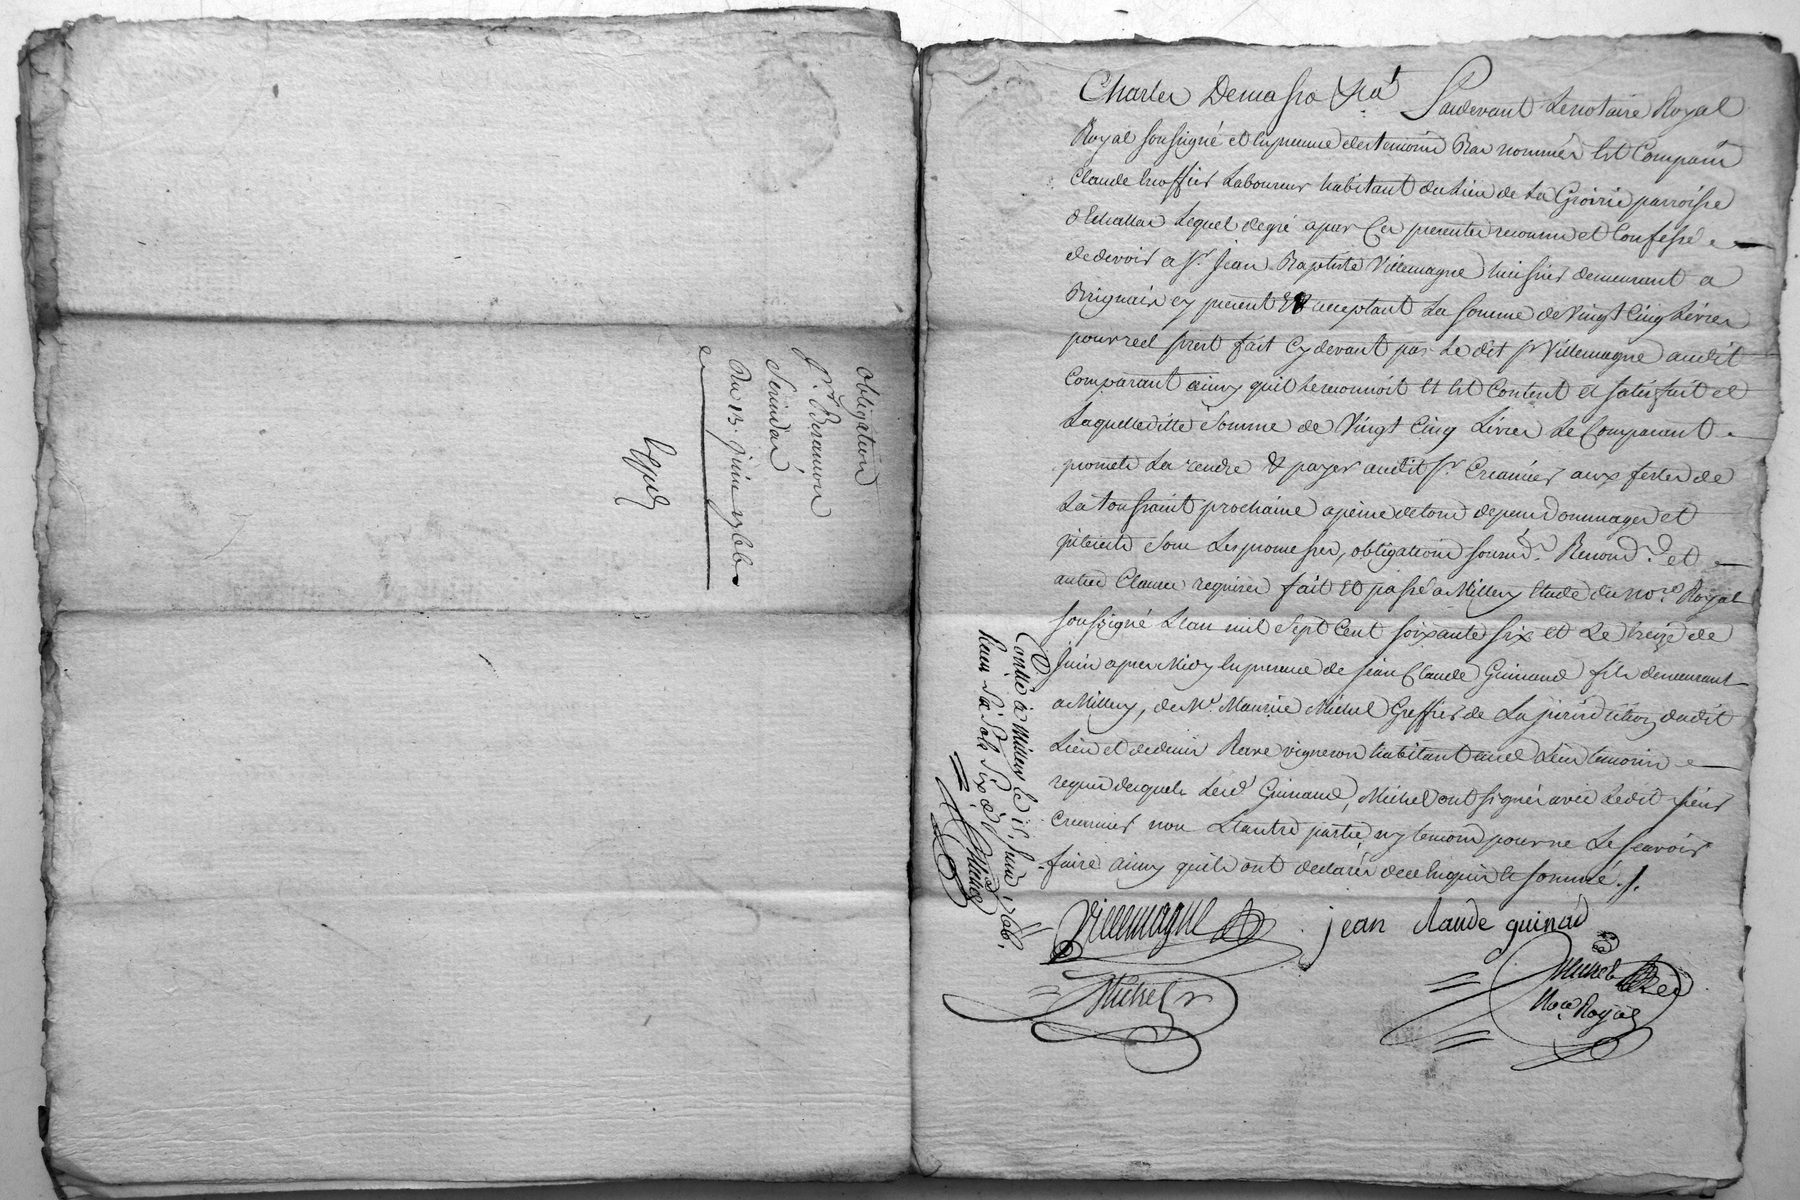 obligation
Sr
du 13. juin 1766
Pardevant Lenotaire Royal
Royal soussigné et En presence des temoins Bas nommés Est Comparu
Claude Laboureur habitant du Lieu de La parroisse
d'Echallas Lequel degré a par Ces presentes reconnu et Confessé
dedevoir a Sr. Jean Baptiste Villemagne huissier demeurant a
Brignais cy present Et acceptant La somme de Vingt Cinq Livres
pour reel prest fait Cydevant par Le dit Sr Villemagne audit
Comparant ainsy quil Lereconnoit Et Est Content et satisfait et
Laquelle ditte somme de Vingt Cinq Livres Le Comparant
promets La rendre & payer audit Sr. Creancier aux festes de
La toussaint prochaine apeine detous depens Dommages et
interests sous Les promesses, obligations soumis. Renonc. et
autres Clauses requises fait Et passé a Millery Etude du nore. Royal
soussigné L'an mil sept Cent soixante six et Le treize de
Juin apres Midy En presence de Jean Claude Guinand fils demeurant
a Millery, de Me. Maurice Michel Greffier de La jurisdiction dudit
Lieu et de vigneron habitant audit Lieu temoins
requis desquels Lesd. Guinand, Michel ont signés avec Ledit sieur
Creancier non L'autre partie ny temoin pour ne Le scavoir
faire ainsy quils ont declarés de ce Enquis et sommé ./.
Conllé à Millery le 15 Juin 1766.
six sols six d.
Villemagne
jean claude guinad
Michel
Michel
Nore. Royal